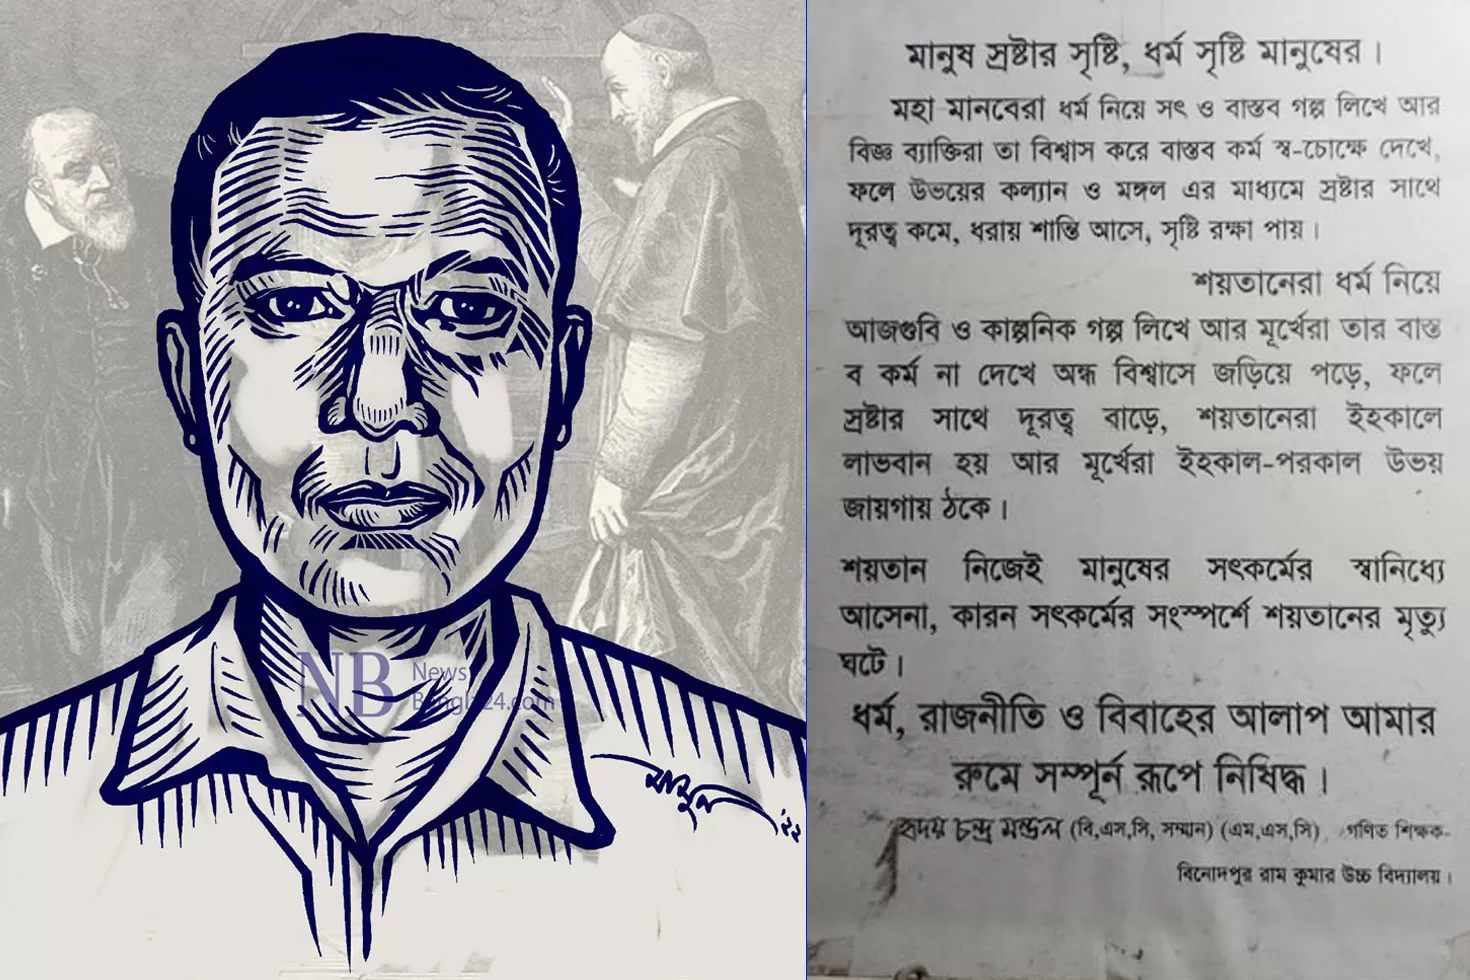 মানুষ স্রষ্টার সৃষ্টি, ধর্ম সৃষ্টি মানুষের।
মহা মানবেরা ধর্ম নিয়ে সৎ ও বাস্তব গল্প লিখে আর
বিজ্ঞ ব্যাক্তিরা তা বিশ্বাস করে বাস্তব কর্ম স্ব-চোক্ষে দেখে,
ফলে উভয়ের কল্যান ও মঙ্গল এর মাধ্যমে স্রষ্টার সাথে
দূরত্ব কমে, ধরায় শান্তি আসে, সৃষ্টি রক্ষা পায়।
শয়তানেরা ধর্ম নিয়ে
আজগুবি ও কাল্পনিক গল্প লিখে আর মূর্খেরা তার বাস্ত
ব কর্ম না দেখে অন্ধ বিশ্বাসে জড়িয়ে পড়ে, ফলে
স্রষ্টার সাথে দূরত্ব বাড়ে, শয়তানেরা ইহকালে
লাভবান হয় আর মূর্খেরা ইহকাল-পরকাল উভয়
জায়গায় ঠকে।
শয়তান নিজেই মানুষের সৎকর্মের স্বানিধ্যে
আসেনা, কারন সৎকর্মের সংস্পর্শে শয়তানের মৃত্যু
ঘটে।
ধর্ম, রাজনীতি ও বিবাহের আলাপ আমার
রুমে সম্পূর্ন রূপে নিষিদ্ধ।
হৃদয় চন্দ্র মন্ডল (বি,এস,সি, সম্মান) (এম,এস,সি) গণিত শিক্ষক-
বিনোদপুর রাম কুমার উচ্চ বিদ্যালয়।
NB News
Bangla24.com
মামুন '২২